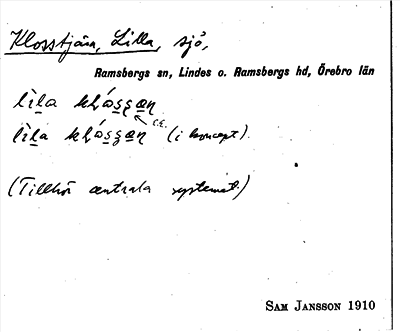 Klosstjärn, Lilla, sjö,
Ramsbergs sn, Lindes o. Ramsbergs hd, Örebro län
li̇̀la klȧ́ssan
c.c.
li̇̀la klȧ́ssan (i koncept).
(Tillhör centrala systemet.)
SAM JANSSON 1910